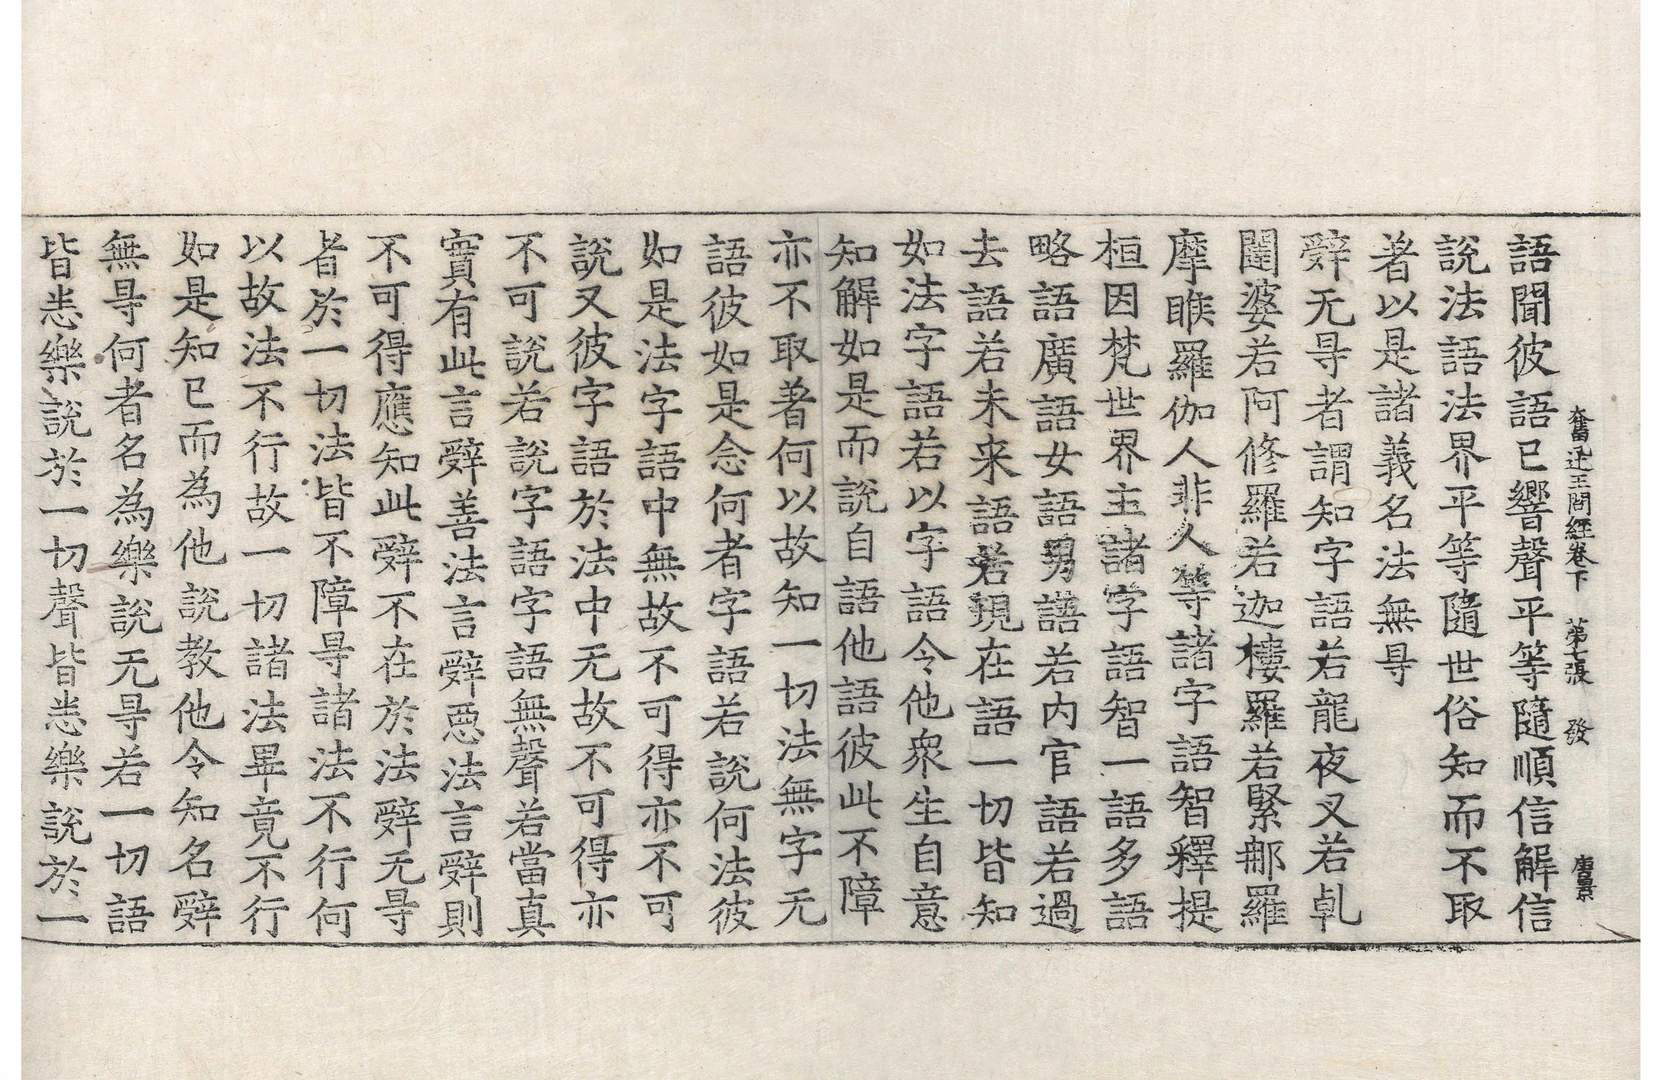 奮迅王問經卷下　第七張　發　唐景
語聞彼語已響聲平等隨順信解信
說法語法界平等隨世俗知而不取
著以是諸義名法無㝵
辤无㝵者謂知字語若龍夜叉若乹
闥婆若阿修羅若迦樓羅若緊郍羅
摩睺羅伽人非人等諸字語智釋提
桓因梵世界主諸字語智一語多語
略語廣語女語男語若内官語若過
去語若未来語若現在語一切皆知
如法字語若以字語令他衆生自意
知解如是而說自語他語彼此不障
亦不取著何以故知一切法無字无
語彼如是念何者字語若說何法彼
如是法字語中無故不可得亦不可
說又彼字語於法中无故不可得亦
不可說若說字語字語無聲若當真
實有此言辤善法言辤惡法言辤則
不可得應知此辤不在於法辤无㝵
者於一切法皆不障㝵諸法不行何
以故法不行故一切諸法畢竟不行
如是知已而為他說教他令知名辤
無㝵何者名為樂說无㝵若一切語
皆悉樂說於一切聲皆悉樂說於一